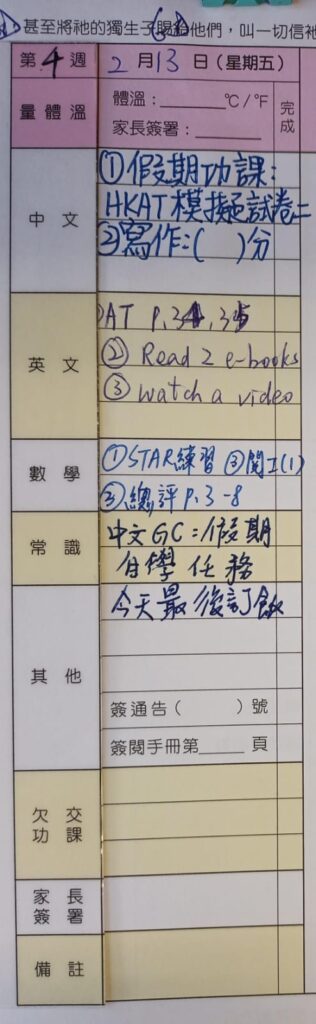 甚至將祂的獨生子賜給他們，叫一切信祂
第4週 2月13日(星期五)
量體溫 體溫：______°C/°F 完成
家長簽署：______
中文 ①假期功課：
HKAT模擬試卷二
②寫作：( )分
英文 AT P.34, 35
② Read 2 e-books
③ watch a video
數學 ①STAR練習 ②閱工(1)
③總評 P.3-8
常識 中文GC：假期
自學任務
其他 今天最後訂飯
簽通告( )號
簽閱手冊第____頁
欠交
功課
家長
簽署
備註